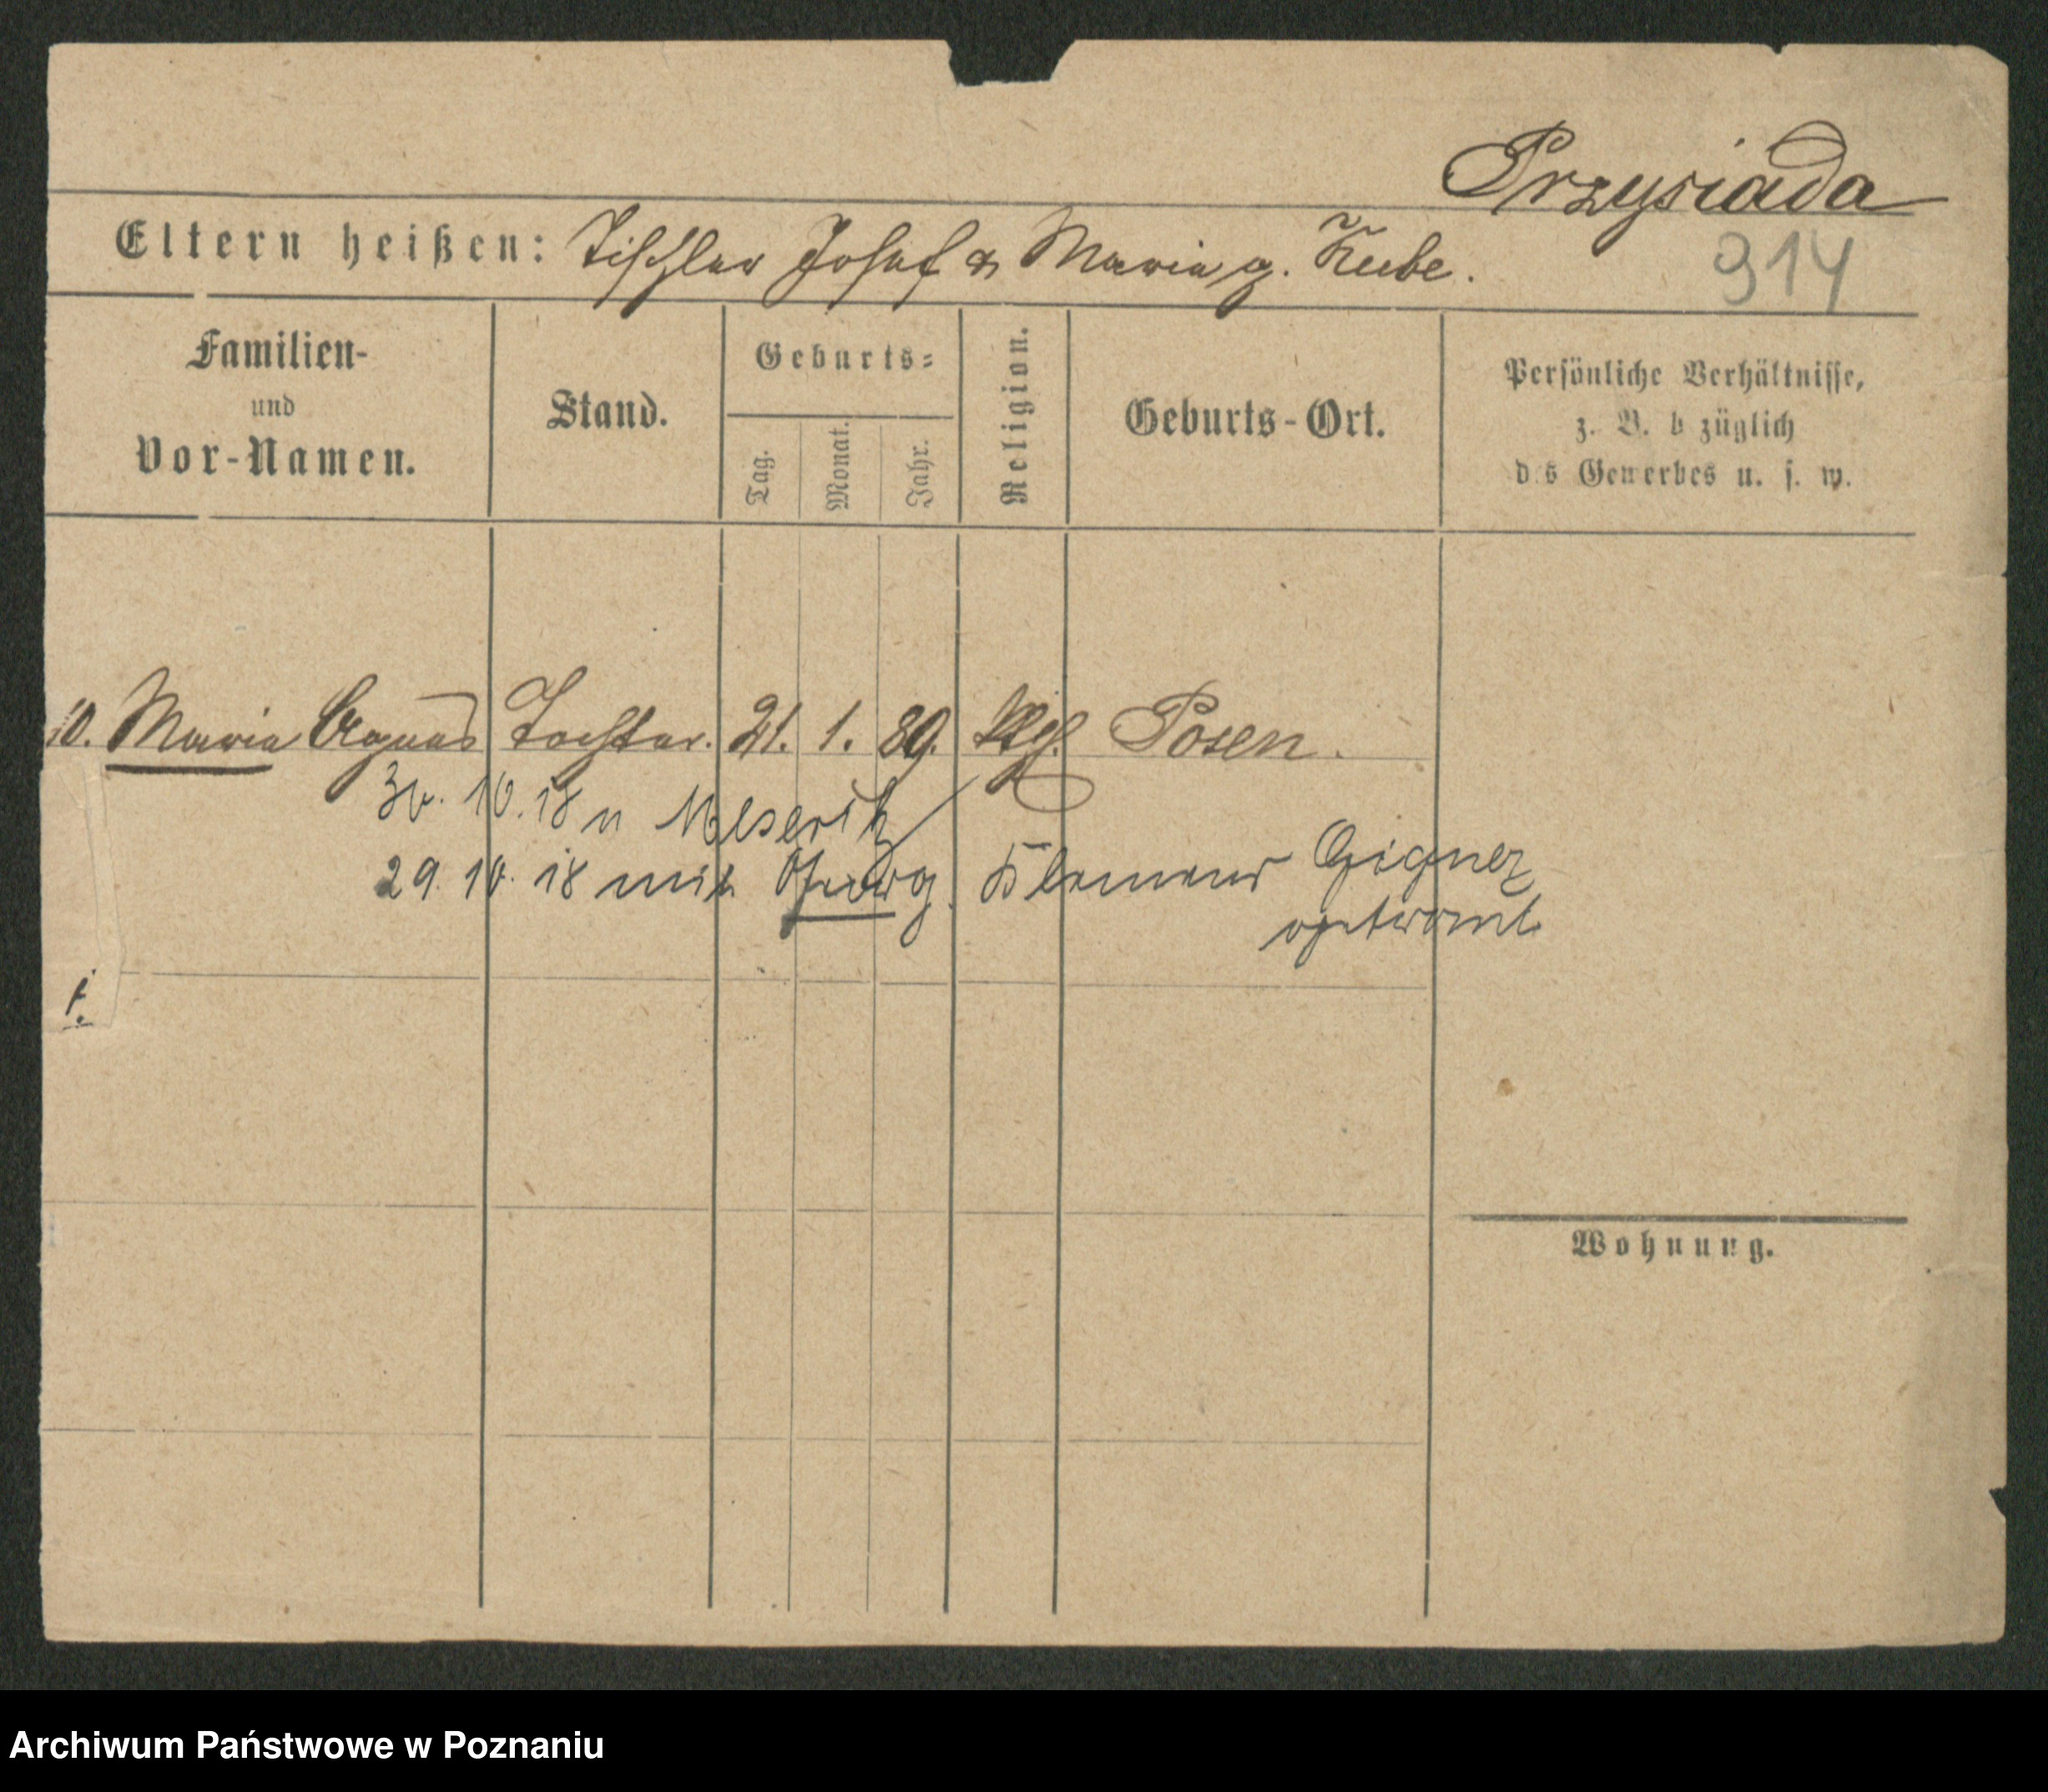 Przysiada
Eltern heißen: Tischler Josef & Maria g. Kube.
914
Familien-
und
Vor-Namen.
Stand.
Geburts-
Tag.
Monat.
Jahr.
Religion.
Geburts-Ort.
Persönliche Verhältnisse,
z. B. b züglich
d s Gewerbes u. s. w.
10. Maria Agnes Tochter. 21. 1. 89. Posen.
30. 10. 18 n Meseritz
29. 10. 18 mit Klemens
Wohnung.
Archiwum Państwowe w Poznaniu